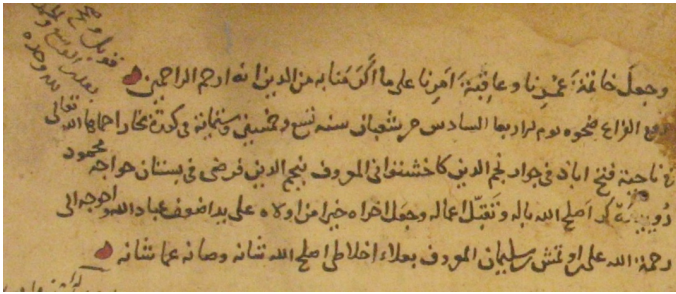 وجعل خاتمة عمرنا وعاقبة امرنا على ما اكرمنا به من الدين انه ارحم الراحمين
وقع الفراغ ضحوه يوم الاربعا السادس من شعبان سنه تسع وخمسين وستماية في كورة بخارا حماها الله تعالى
في ناحية فتح اباذ في جوار نجم الدين المعروف بنجم الدين في بستان خواجه محمود
اصلح الله باله وتقبل اعماله وجعل اخراه خيرا من اولاه على يد اضعف عباد الله واحوجه الى
رحمة الله على بن سليمان المعروف بعلاء اخلاطى اصلح الله شانه وصانه عما شانه
قوبل
بقدر الوسع
لله وحده